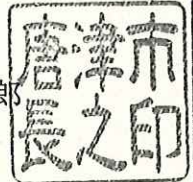 唐津市
長之印